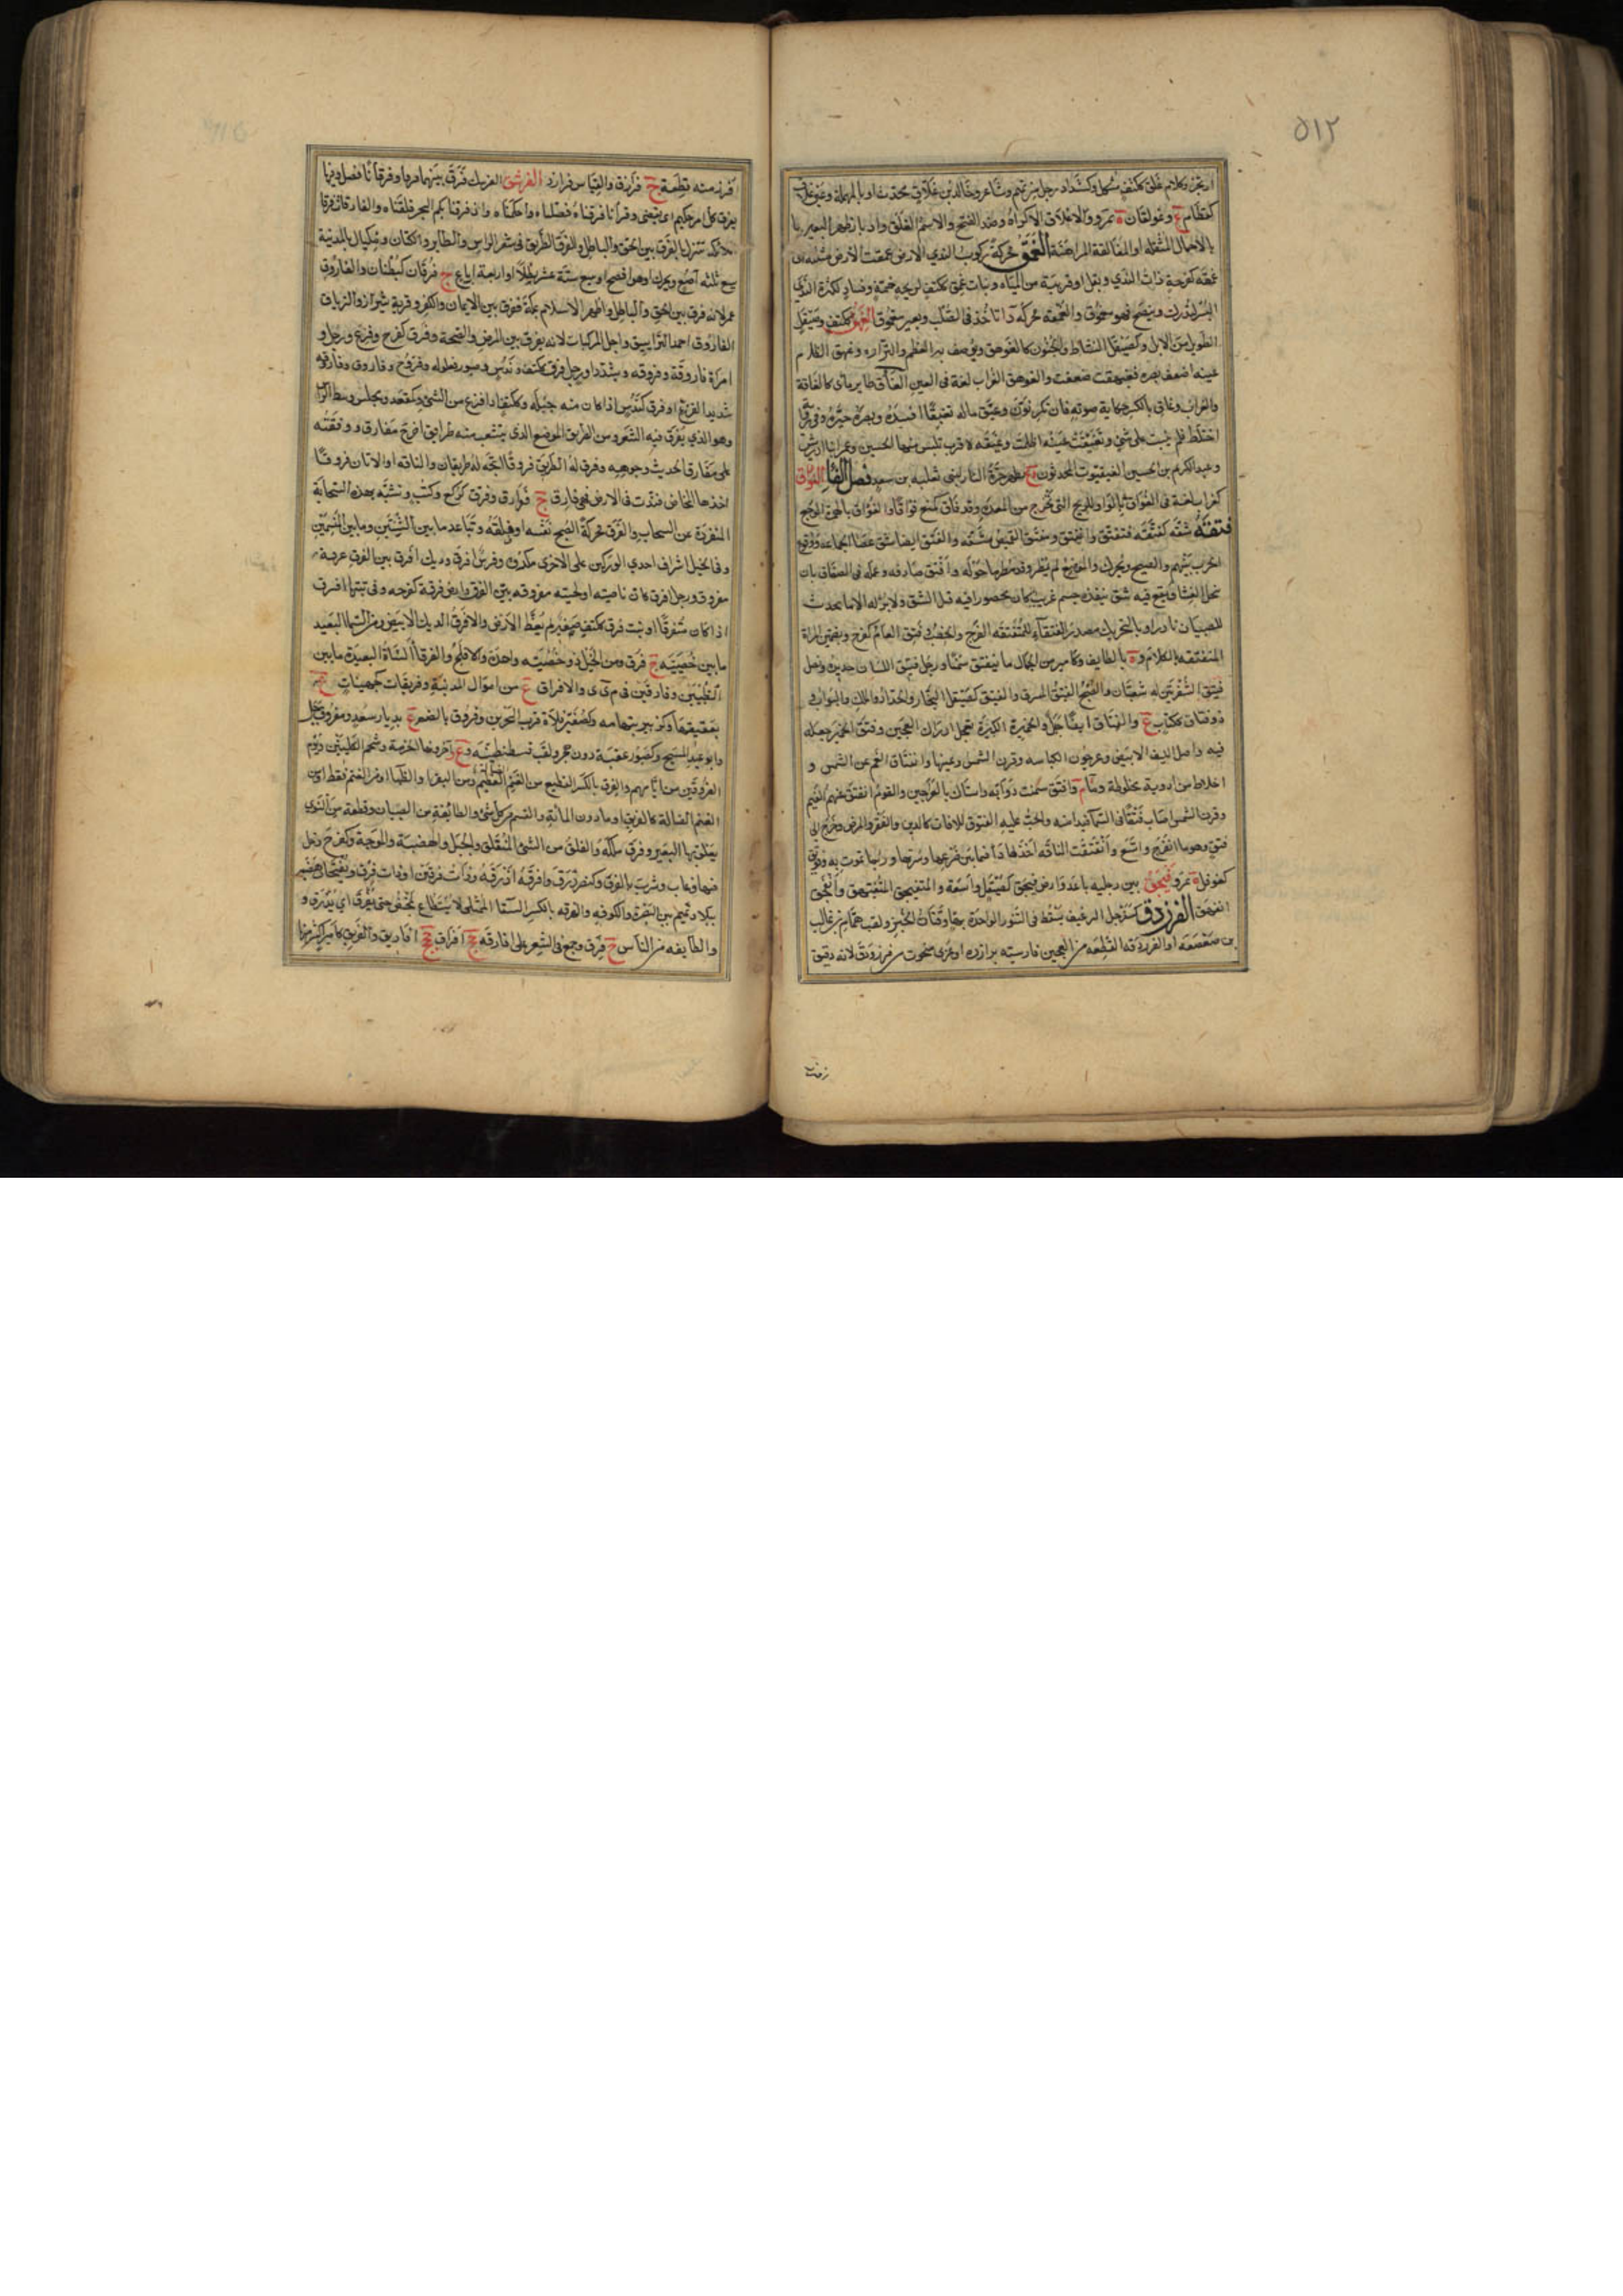 ٥١٢
وكلام غلق ككتف مشكل وكشداد رجل من تميم وشاعر وخالد بن غلاق محدث او بالمهملة وعين غلاق
كقطام ع وغولقان ة بمرو والاغلاق الاكراه وضد الفتح والاسم الغلق وادبار ظهر البعير
بالاحمال المثقلة او المغالقة المراهنة الغمق محركة ركوب الندى الارض غمقت الارض مثلثة
غمقة كفرحة ذات الندى وثقل او قريبة من المياه ونبات غمق ككتف لريحه خمة وفساد لكثرة الندى
والغمقة محركة داء تاخذ فى الصلب وبعير مغموق الغهق ككتف وصيقل
الطويل من الابل وكصيقل النشاط والجنون كالغوهق ويوصف به العظم والترارة وغهق الظلام
عينه اضعف بصره فغيهقت ضعفت والغوهق الغراب لغة فى العين الغاق طاير مائى كالغاقة
والغراب وغاق بالكسر حكاية صوته فان نكر نون وغيق ماله تغييقا افسده وبصره حيره وفى رأيه
اختلط فلم يثبت على شى وتغيقت عينه اظلمت وغيقة ة قرب تنيس منها الحسين
وعبد الكريم بن الحسين الغيقيون المحدثون وع بظهر حرة النار لبنى ثعلبة بن سعد فصل الفا الفؤاق
كغراب لغة فى الفواق بالواو للريح التى تخرج من المعدة وقد فاق كمنع فواقا
فتقه شقه كفتقه فتفتق وانفتق ومفتق القميص مشقه والفتق ايضا شق عصا الجماعة ووقوع
الحرب بينهم والصبح ويحرك والموضع لم يمطر وقد مطر ما حوله وافتق صادفه وعلة فى الصفاق بان
ينحل الغشا ويقع فيه شق ينفذه جسم غريب كان محصورا فيه قبل الشق ولا برء له الا ما يحدث
للصبيان نادرا وبالتحريك مصدر الفتقاء للمنفتقة الفرج والخصب وفتق العام كفرح وبضمتين المراة
المتفتقة بالكلام وة بالطايف وكامير من الجمال ما ينفتق سمنا ورجل فتيق اللسان حديده ونصل
فتيق الشفرتين له شعبتان والصبح الفتيق المشرق والفيتق كصيقل النجار والحداد والملك والبواب
ذو فتاق ككتاب ع والفتاق ايضا جبل والخميرة الكبيرة تعجل ادراك العجين وفتق الخمير جعله
فيه واصل الليف الابيض وعرجون الكباسة وقرن الشمس وعينها وانفتاق الغيم عن الشمس و
اخلاط من ادوية مخلوطة وما وافتق سمنت دوابه واستاك بالعراجين والقوم انفتق عنهم الغيم
وقرن الشمس اصاب فتقا فى السماء فبدا منه والح عليه الفتوق للافات كالدين والفقر والمرض وخرج الى
فتق وهو ما انفرج واتسع وانفتقت الناقة اخذها داء فيما بين ضرعها وسرتها وربما تموت به
كفوفل ة بمرو فيحق بين رجليه باعد وارض فيحق كصيقل واسعة والمتفيحق المتفيهق وانفحق
انفهق الفرزدق كسفرجل الرغيف يسقط فى التنور الواحدة بهاء وفتات الخبز ولقب همام بن غالب
بن صعصعة او الفرزدقة القطعة من العجين فارسيته برازده او عربى منحوت من فرز ودق لانه دقيق
افرز منه قطعة ج فرازق والقياس فرازد الفرشق الفرق فرق بينهما فرقا وفرقانا فصل وفيها
يفرق كل امر حكيم اى يقضى وقرانا فرقناه فصلناه واحكمناه واذ فرقنا بكم البحر فلقناه والفارقات فرقا
الملائكة تنزل بالفرق بين الحق والباطل والفرق الطريق فى شعر الراس والطاير والكتان ومكيال بالمدينة
يسع ثلثة آصع ويحرك اوهو افصح او يسع ستة عشر رطلا او اربعة ارباع ج فرقان كبطنان والفاروق
عمر لانه فرق بين الحق والباطل او اظهر الاسلام بمكة ففرق بين الايمان والكفر وقرية شيراز والترياق
الفاروق احمد الترايق واجل المركبات لانه يفرق بين المرض والصحة وفرق كفرح وفزع ورجل و
امراة فاروقة وفروقة ويشدد او رجل فرق ككتف وندس وصبور وملولة وفروج وفاروق وفاروقة
شديد الفزع او فرق كندس اذا كان منه جبلة وككتف اذا فزع من الشى وكمقعد ومجلس وسط الراس
وهو الذى يفرق فيه الشعر ومن الطريق الموضع الذى يتشعب منه طريق اخر ج مفارق ووقفته
على مفارق الحديث وجوهه وفرق له الطريق فروقا اتجه له طريقان والناقة او الاتان فروقا
اخذها المخاض فندت فى الارض فهى فارق ج فوارق وفرق كركع وكتب وتشبه بهذه السحابة
المنفردة عن السحاب والفرق محركة الصبح نفسه او فلقه وتباعد ما بين الثنيتين وما بين المنسمين
وفى الخيل اشراف احدى الوركين على الاخرى مكروه وفرس افرق وديك افرق بين الفرق عرفه
مفروق ورجل افرق كان ناصيته او لحيته مفروقة بين الفرق وارض فرقة كفرحة وفى نبتها فرق
اذا كان متفرقا او نبت فرق ككتف صغير لم يغط الارض والافرق الديك الابيض ومن الشا البعيد
ما بين خصييه ج فرق ومن الخيل ذو خصية واحدة والافلج والفرقا الشاة البعيدة ما بين
الطبيين وفارقين فى م ى ى والافراق ع من اموال المدينة وفريقات كجهينات ع
بعقيقها وكزبير بتهامة وكصغير فلاة قرب البحرين وفروق بالضم ع بديار سعد ومفروق جبل
وابو عبد المسيح وكصبور عقبة دون هجر ولقب قسطنطينية وع اخر وبهاء الحرمة وشحم الكليتين ويوم
الفروقين من ايامهم والفرق بالكسر القطيع من الغنم العظيم ومن البقر او الظبا او من الغنم فقط او من
الغنم الضالة كالفريق او ما دون المائة والقسم من كل شى والطايفة من الصبيان وقطعة من النوى
يعلف بها البعير وفرق ملكه والفلق من الشى المنفلق والجبل والهضبة والموجة وكفرح دخل
فيها وغاب وشرب بالفرق وكنصر ذرق وافرقه اذرقه وذات فرقين او ذات فرق ويفتحان هضبة
ببلاد تميم بين البصرة والكوفة والفرقة بالكسر السقا الممتلى لا يستطاع يمخض حتى يفرق اى يذرق و
والطايفة من الناس ج فرق وجمع فى الشعر على افارقة جج افراق ججج افاريق والفريق كامير اكثر منها